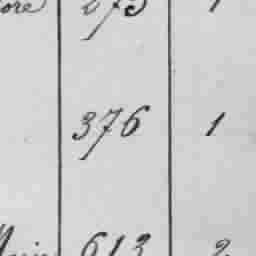 ore 275 1
376 1
613 2